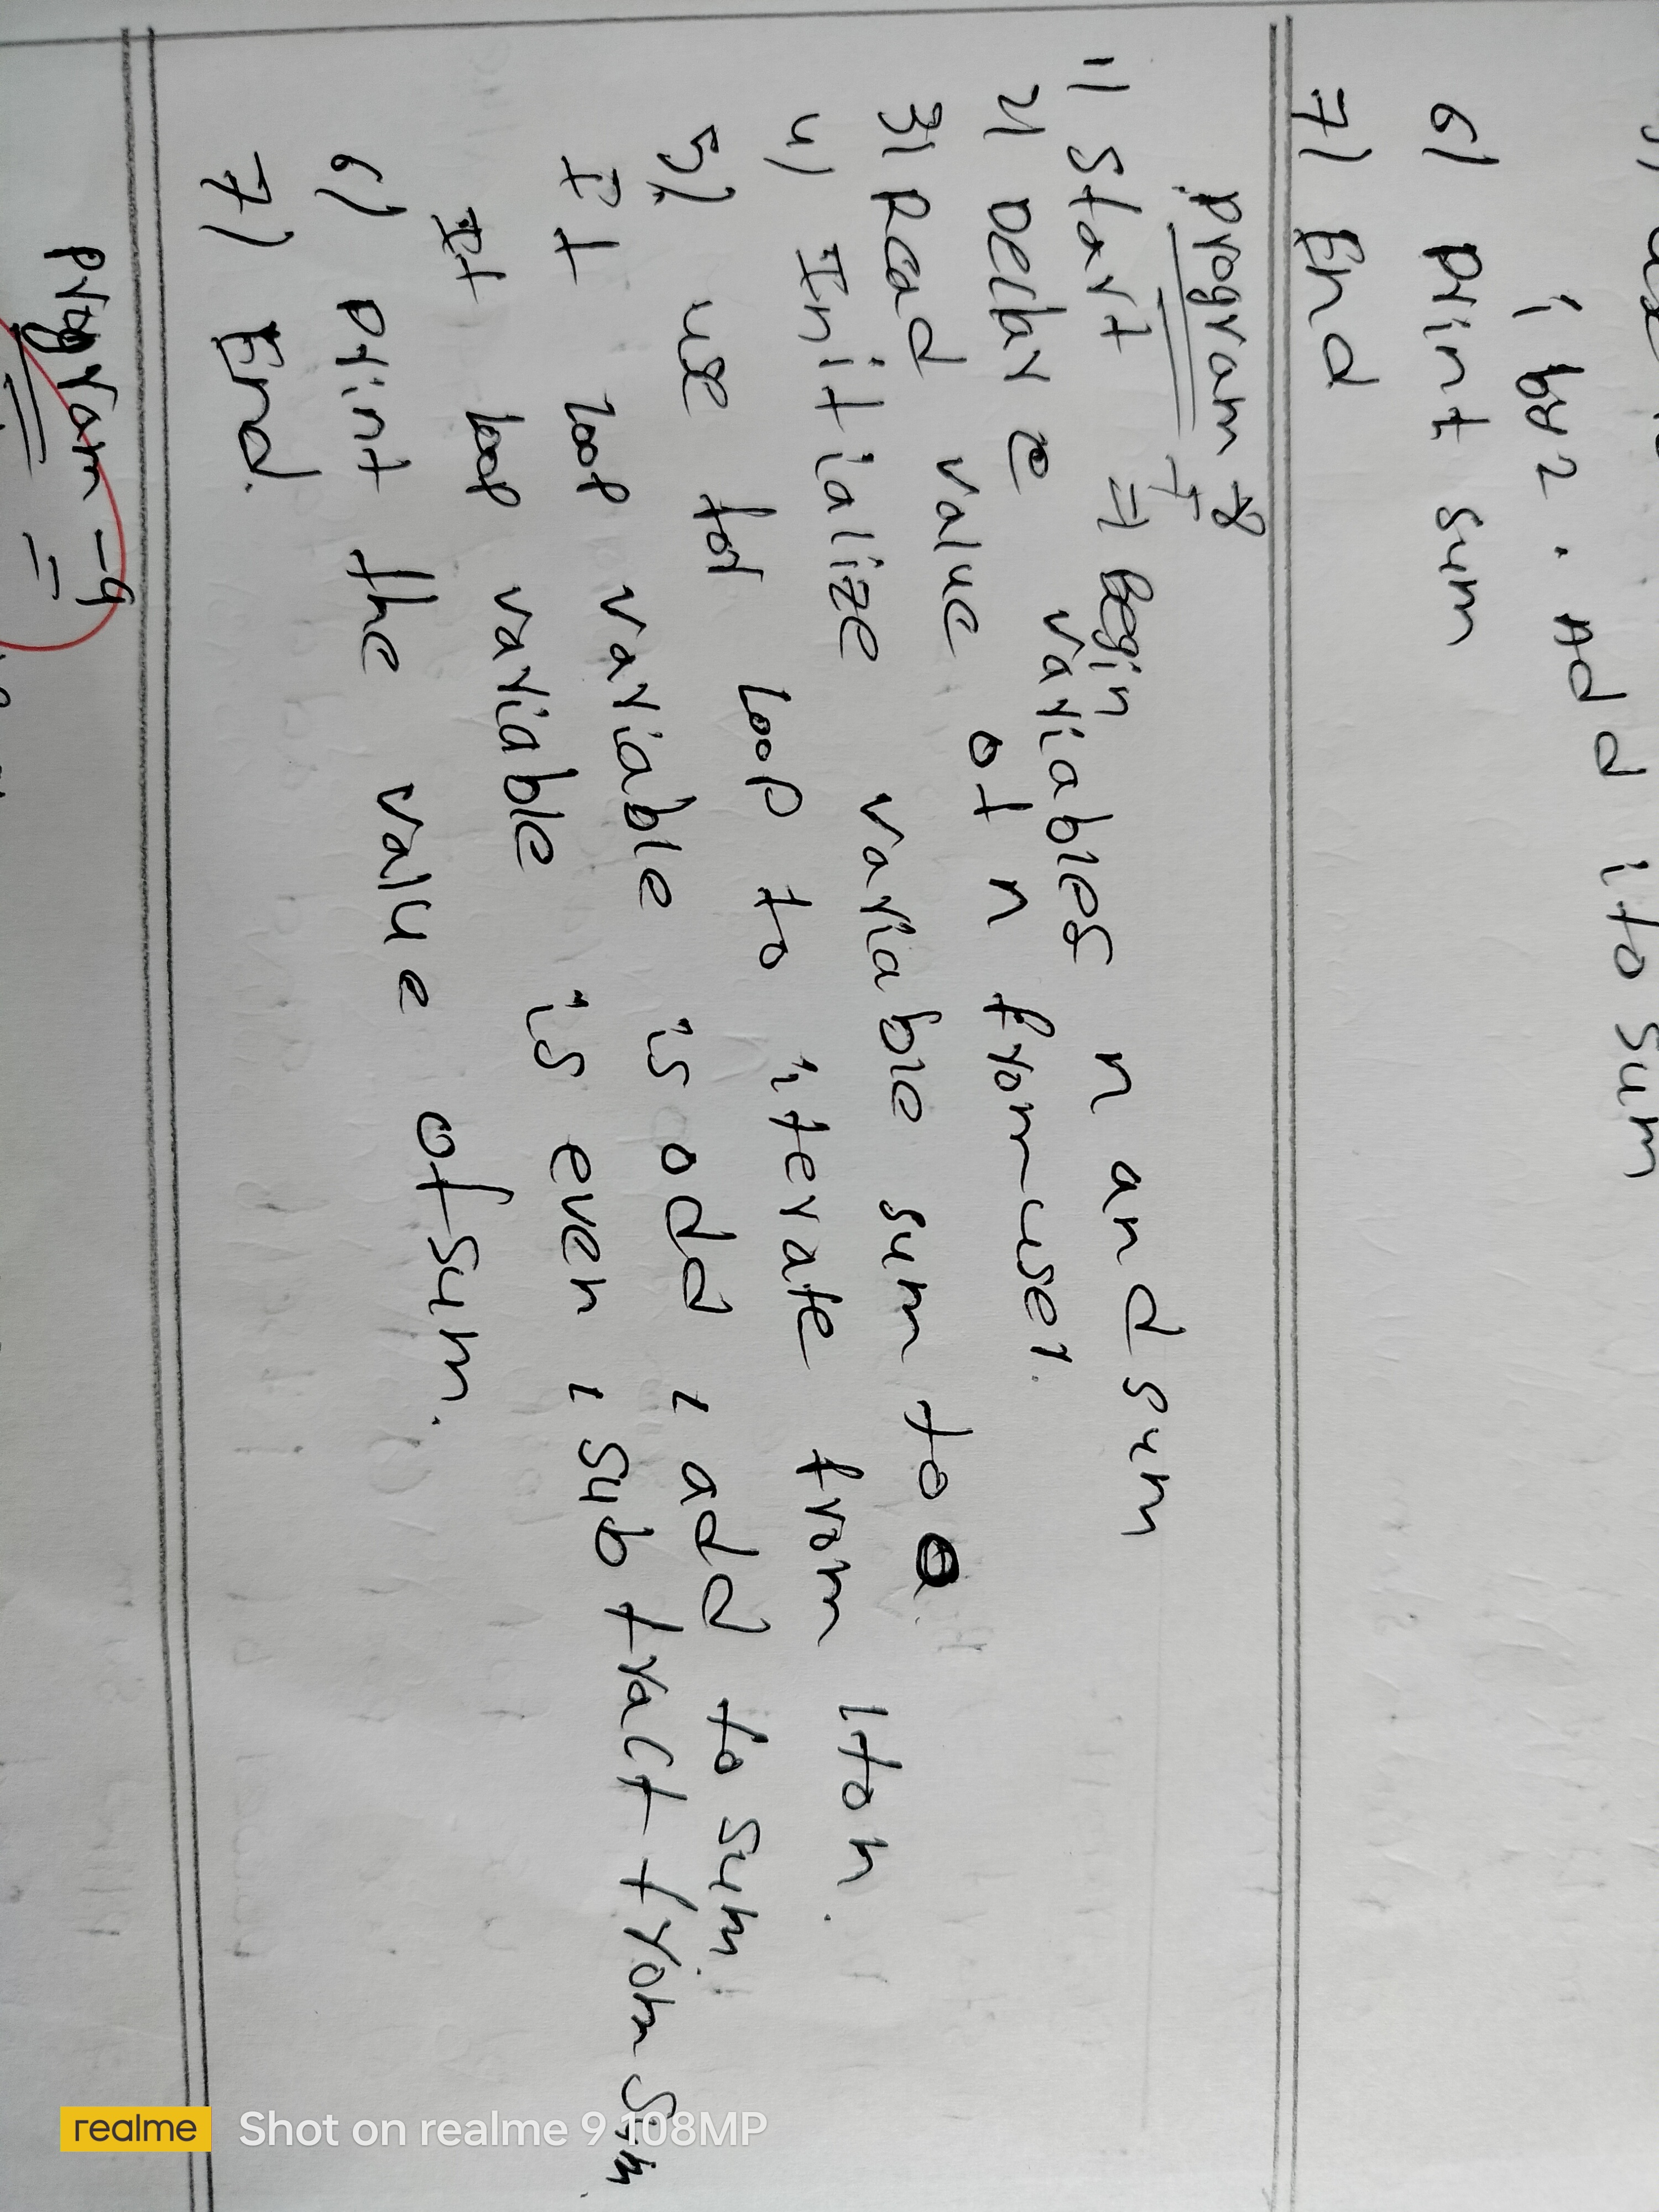 i by 2. Add i to sum
6) print sum
7) End
program - 8
1) Start = Begin
2) Declare variables n and sum
3) Read value of n from user.
4) Initialize variable sum to 0.
5) use for loop to iterate from 1 to n.
If loop variable is odd, add to sum.
If loop variable is even, subtract from sum.
6) print the value of sum.
7) End.
program - 9
realme Shot on realme 9 108MP